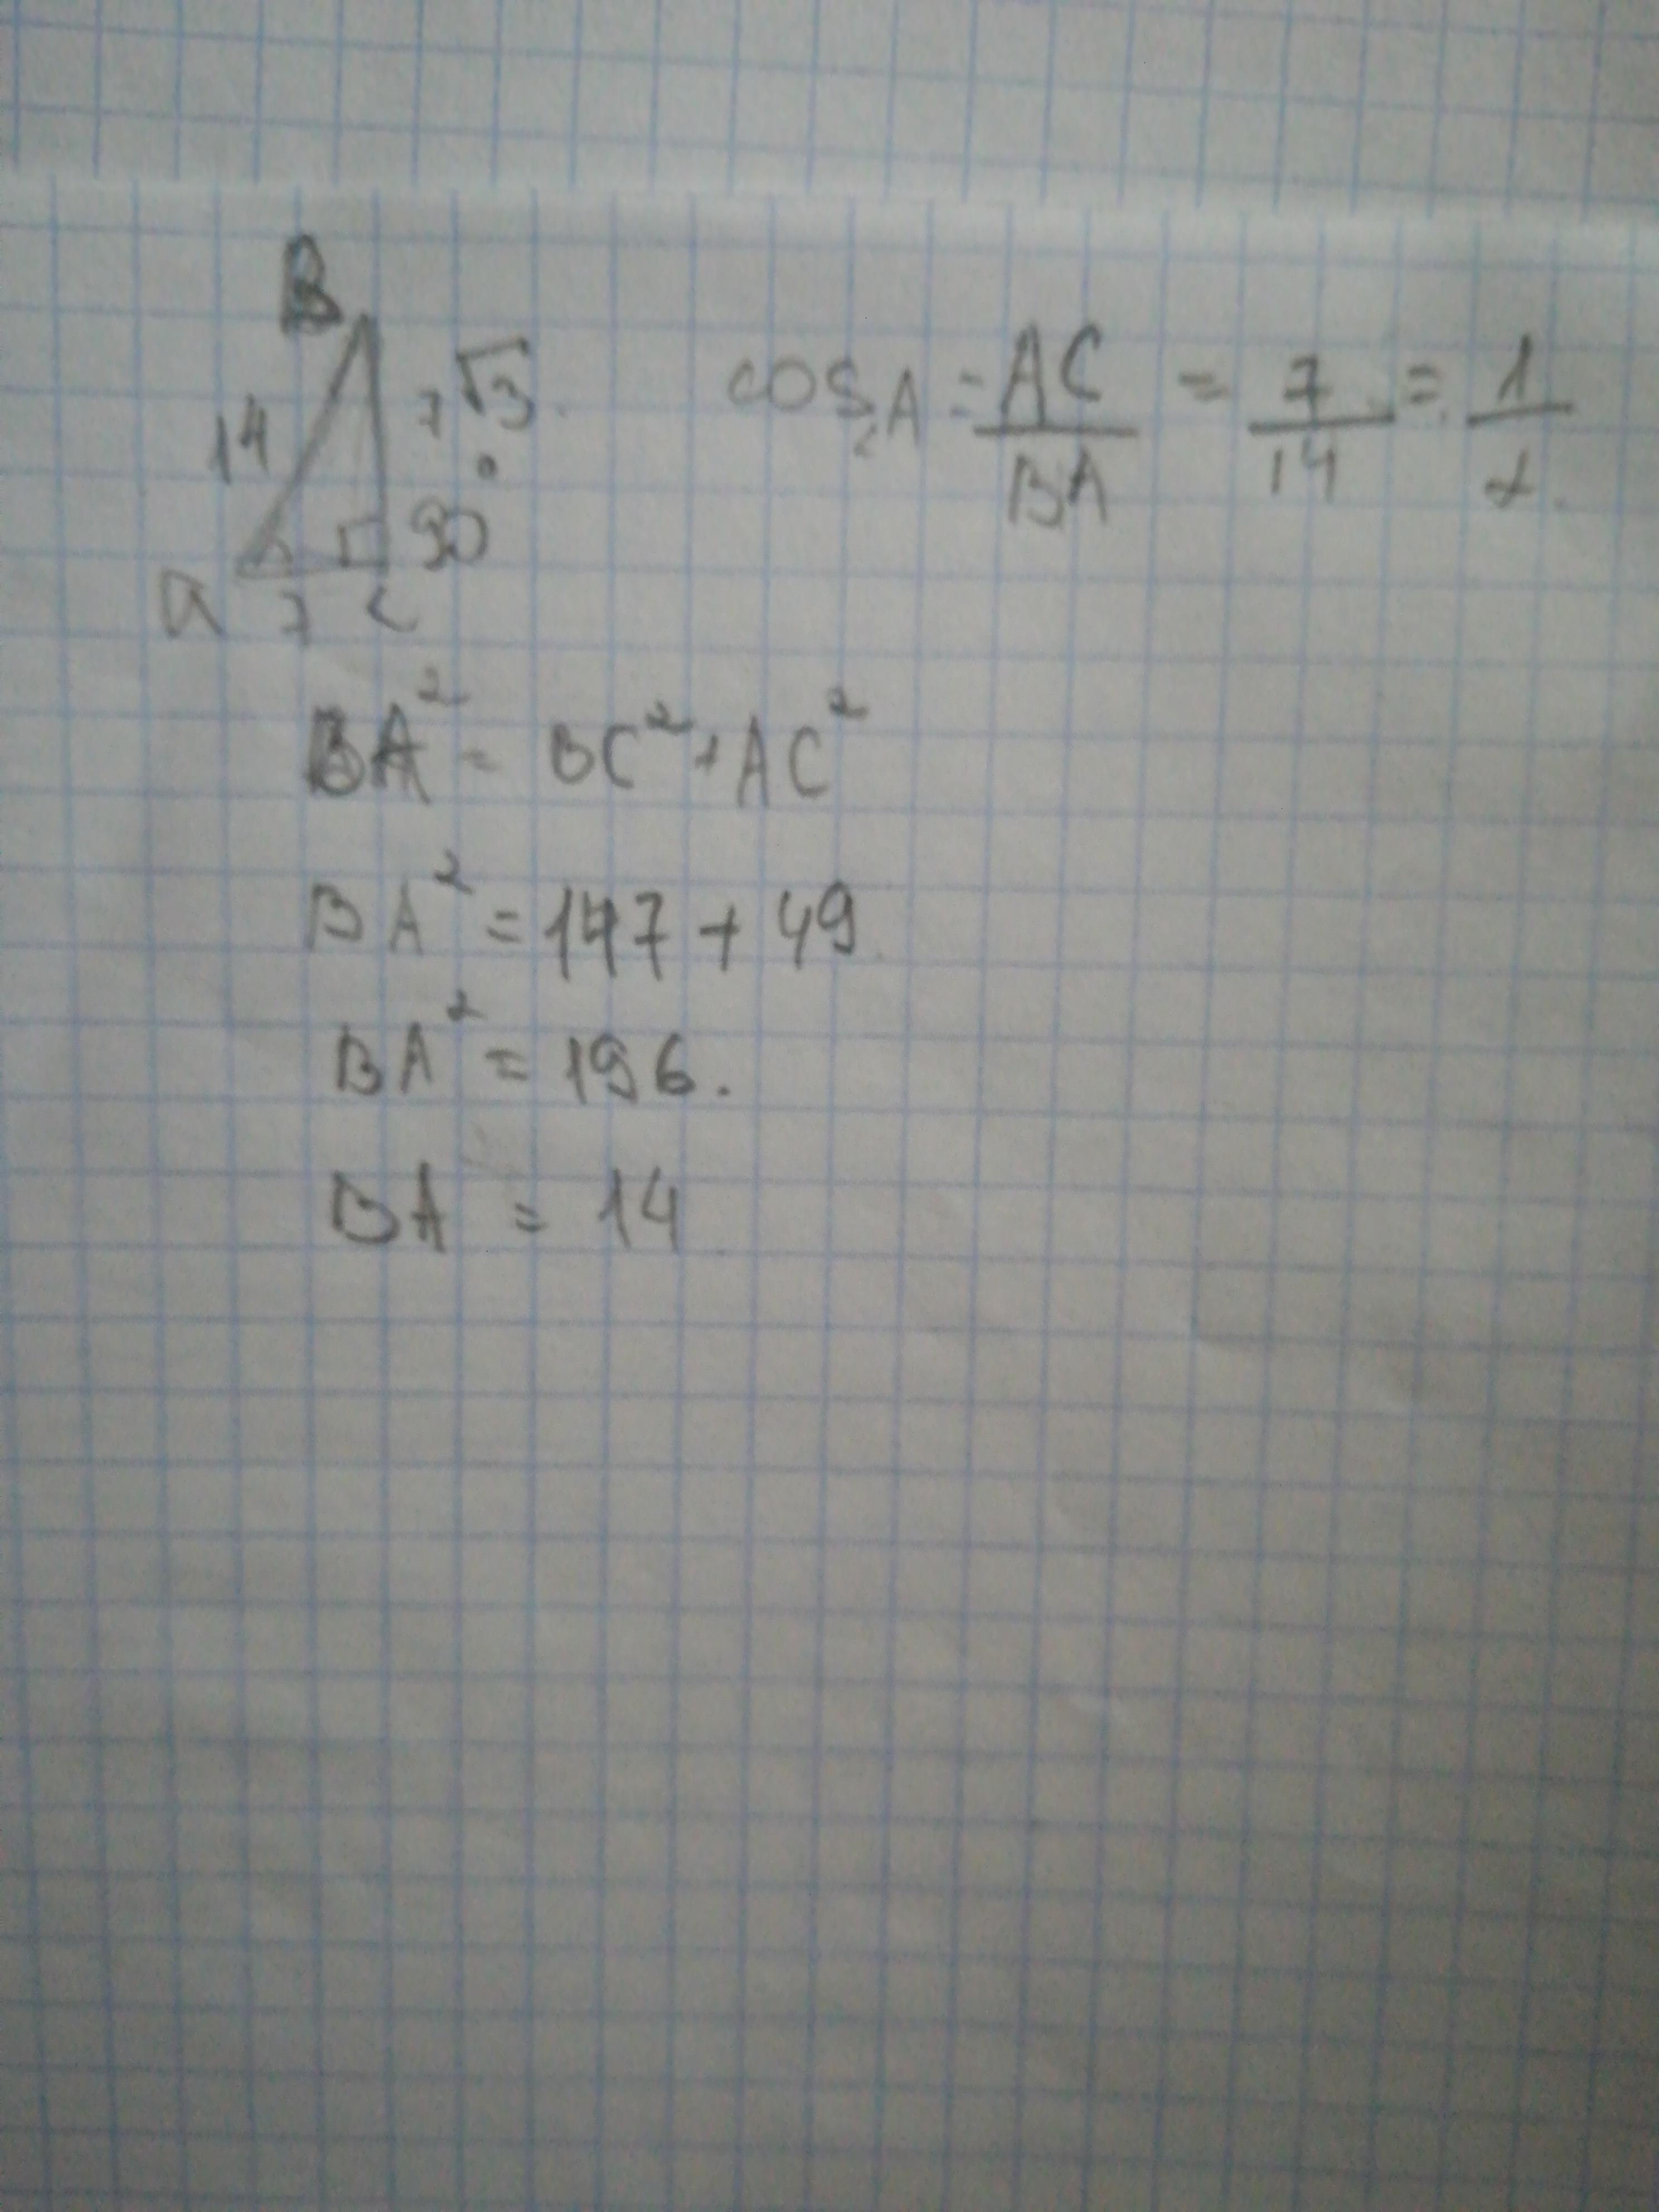 B
14 7√3
90°
a 7 c
cos∠A = AC/BA = 7/14 = 1/2.
BA² = BC² + AC²
BA² = 147 + 49
BA² = 196.
BA = 14